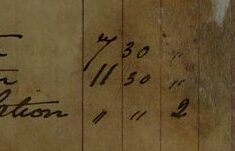 7 30 "
11 30 "
" " 2